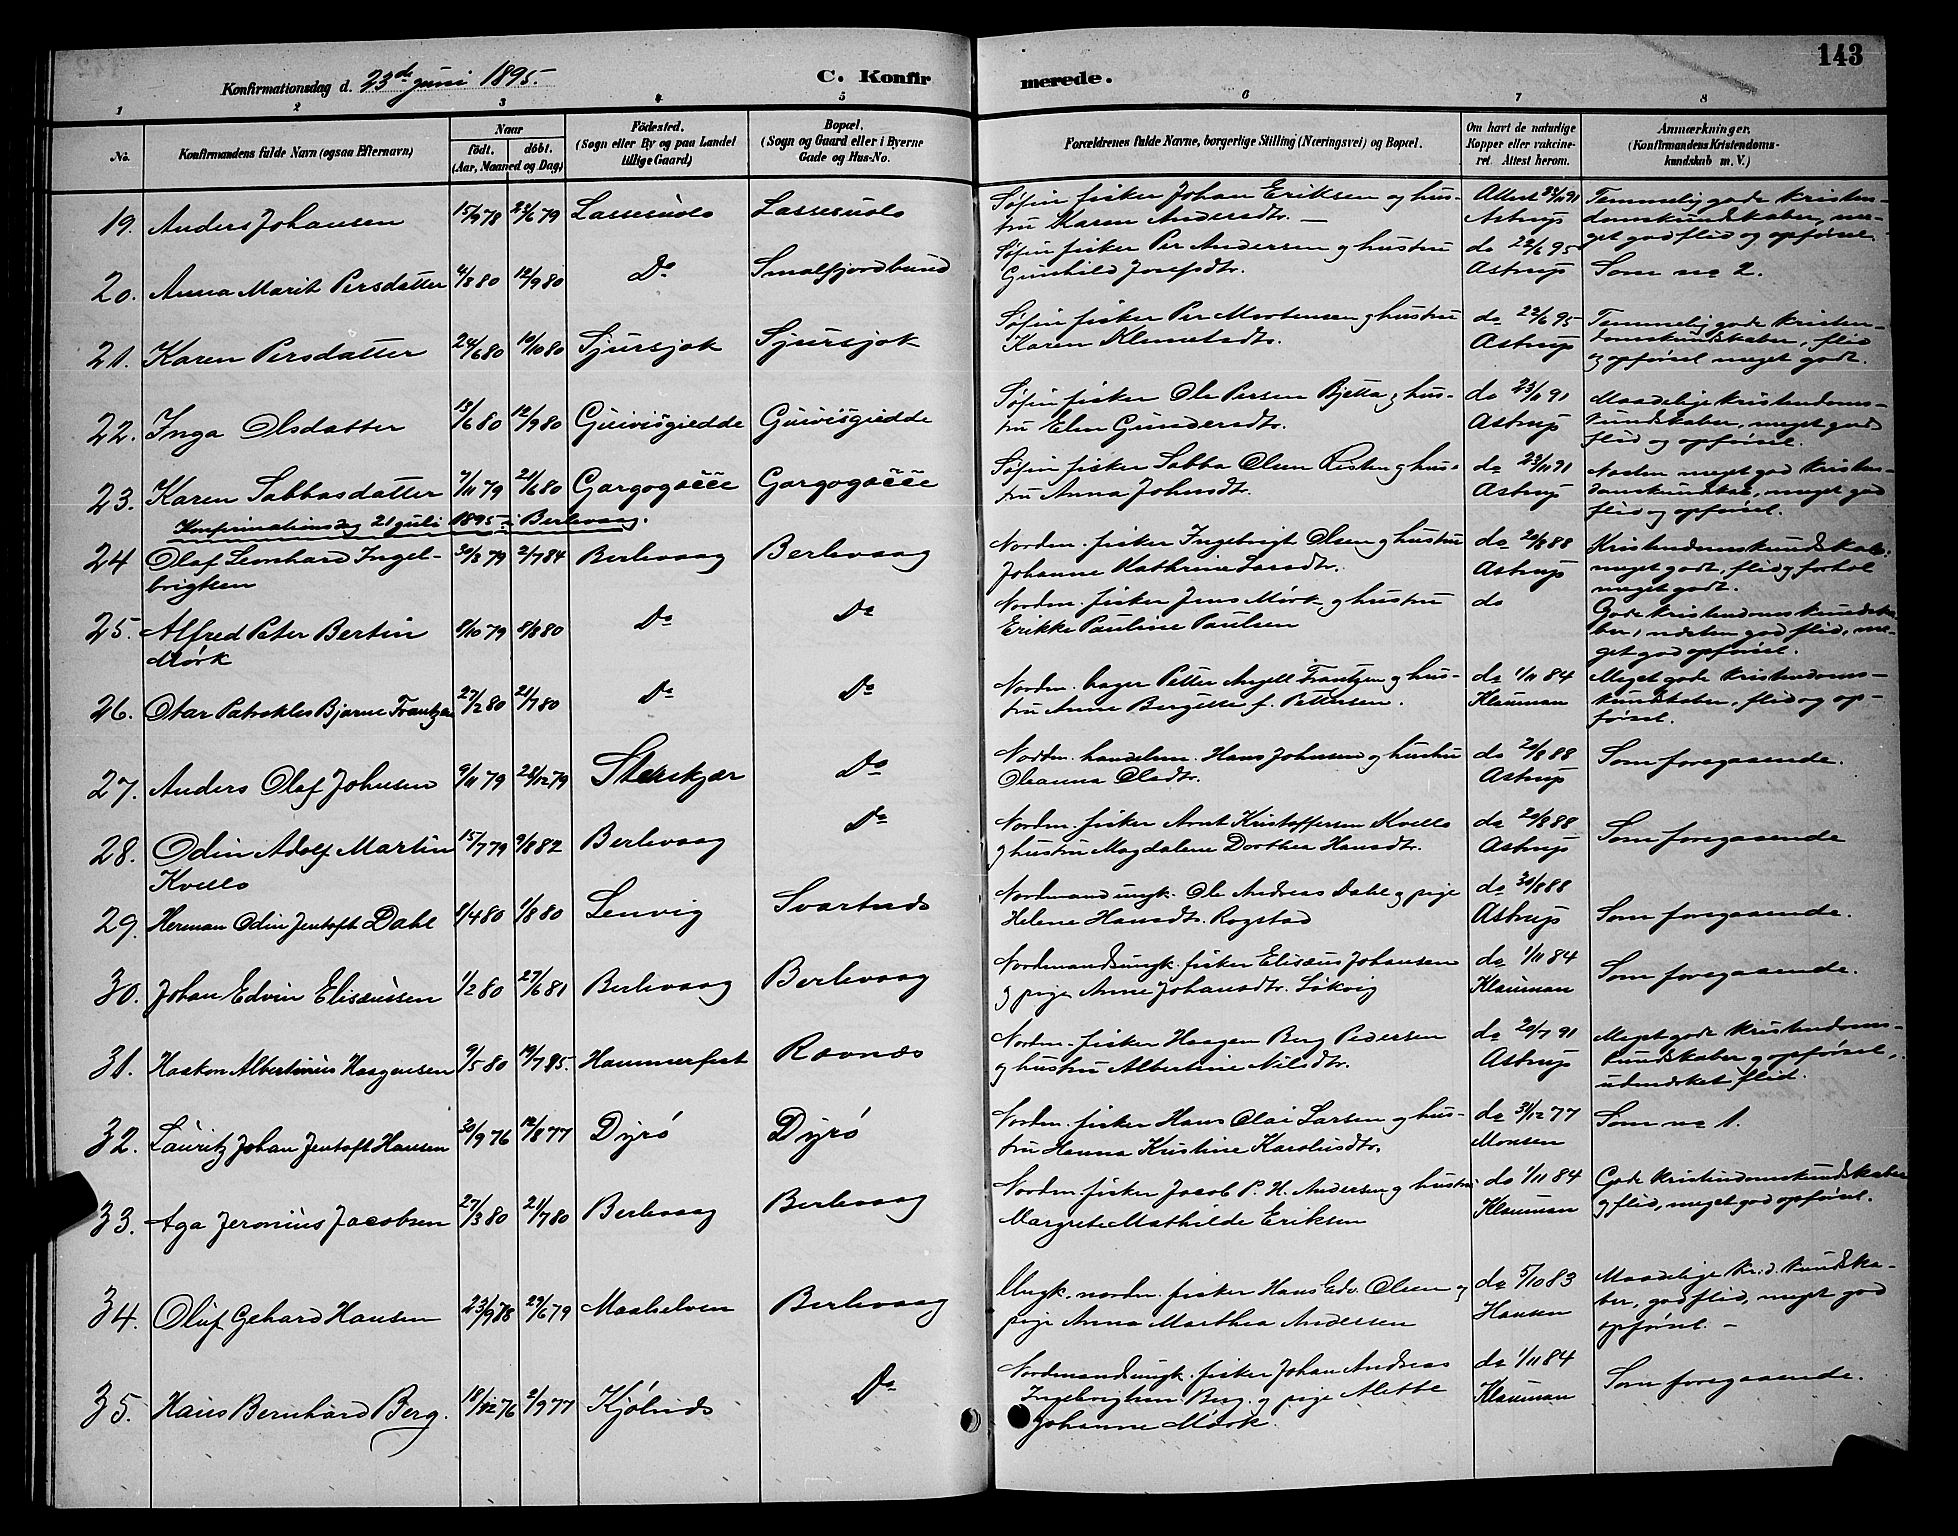 143
Konfirmationsdag d. 23de juni 1895.
C. Konfirmerede.
1 2 3 4 5 6 7 8
No.
Konfirmandens fulde Navn (ogsaa Efternavn)
Naar
født. døbt.
(Aar, Maaned og Dag)
Fødested.
(Sogn eller By og paa Landet
tillige Gaard)
Bopæl.
(Sogn og Gaard eller i Byerne
Gade og Hus-No.
Forældrenes fulde Navne, borgerlige Stilling (Næringsvei) og Bopæl.
Om havt de naturlige
Kopper eller vakcine-
ret. Attest herom.
Anmærkninger.
(Konfirmandens Kristendoms-
kundskab m. V.)
19. Anders Johansen 15/9 78 24/6 79 Lassesuolo Lassesuolo
Søfin fisker Johan Eriksen og hus-
tru Karen Andersdtr. —
Attest 23/11 91
Astrup
Temmelig gode kristen-
domskundskaber, me-
get god flid og opførsel.
20. Anna Marit Persdatter 4/8 80 12/9 80 Do Smalfjordbund
Søfin fisker Per Andersen og hustru
Gunhild Josefsdtr.
do 22/6 95
Astrup
Som no 2.
21. Karen Persdatter 24/6 80 10/10 80 Sjursjok Sjursjok
Søfin fisker Per Mortensen og hustru
Karen Klemetsdtr.
do 22/6 95
Astrup
Temmelig gode kristen-
domskundskaber, flid
og opførsel meget godt.
22. Inga Olsdatter 13/6 80 12/9 80 Guivisgiedde Guivisgiedde
Søfin fisker Ole Persen Bjetta og hus-
tru Elen Gundersdtr.
do 23/11 91
Astrup
Maadelige kristendoms-
kundskaber, meget god
flid og opførsel.
23. Karen Sabbasdatter 7/11 79 21/6 80 Gargogæčče Gargogæčče
Søfin fisker Sabba Olsen Risten og hus-
tru Anna Johnsdtr.
do 23/11 91
Astrup
Næsten meget god kristen-
domskundskab, meget god
flid og opførsel.
Konfirmationsdag 21 juli 1895 i Berlevaag.
24 Olaf Leonhard Ingel-
brigtsen
30/3 79 2/7 84 Berlevaag Berlevaag
Nordm. fisker Ingebrigt Olsen og hustru
Johanne Kathrine Larsdtr.
do 20/8 88
Astrup
Kristendomskundskab:
meget godt, flid og forhol
meget godt.
25. Alfred Peter Bertin
Mørk
8/10 79 8/8 80 Do Do
Nordm. fisker Jens Mørk og hustru
Erikke Pauline Paulsen
do
Gode kristendomskundska-
ber, næsten god flid, me-
get god opførsel.
26. Otar Patrokles Bjarne Frantzen 27/2 80 21/7 80 Do Do
Nordm. bager Petter Angell Frantzen og hus-
tru Anne Bergitte f. Pettersen.
do 1/11 84
Klauman
Meget gode kristendoms-
kundskaber, flid og op-
førsel.
27. Anders Olaf Johnsen 9/11 79 28/12 79 Storskjær Do
Nordm. handelsm. Hans Johnsen og hustru
Oleanna Olsdtr.
do 20/8 88
Astrup
Som foregaaende.
28. Odin Adolf Martin
Kvello
15/7 79 9/8 82 Berlevaag Do
Nordm. fisker Arnt Kristoffersen Kvello
og hustru Magdalene Dorthea Hansdtr.
do 20/8 88
Astrup
Som foregaaende
29. Herman Odin Jentoft Dahl 8/4 80 1/8 80 Lenvig Svartnæs
Nordmand ungk. Ole Andreas Dahl og pige
Helene Hansdtr. Rogstad
do 30/8 88
Astrup
Som foregaaende.
30. Johan Edvin Elisæussen 1/2 80 27/6 81 Berlevaag Berlevaag
Nordmand ungk. fisker Elisæus Johansen
og pige Anne Johansdtr. Løkvig
do 1/11 84
Klauman
Som foregaaende.
31. Haakon Albertinius Haagensen 9/5 80 19/7 85. Hammerfest Ravnæs
Nordm. fisker Haagen Berg Pedersen
og hustru Albertine Nilsdtr.
do 20/7 91
Astrup
Meget gode kristendoms-
kundskaber og opførsel,
udmærket flid.
32. Lauritz Johan Jentoft Hansen 30/9 76 12/8 77 Dyrø Dyrø
Nordm. fisker Hans Olai Larsen og hus-
tru Hanna Kristine Karolusdtr.
do 31/12 77
Monsen
Som no 1.
33. Aga Jeronius Jacobsen 27/3 80 21/7 80 Berlevaag Berlevaag
Nordm. fisker Jacob P. H. Andersen og hustru
Margrete Mathilde Eriksen
do 1/11 84
Klauman
Gode kristendomskundskaber
og flid, meget god opførsel.
34. Oluf Gehard Hansen 23/9 78 29/6 79 Maalselven Berlevaag
Ungk. nordm. fisker Hans Edv. Olsen og
pige Anna Marthea Andersen
do 5/10 83
Hansen
Maadelige kr.d. kundska-
ber, god flid, meget god
opførsel. —
35. Hans Bernhard Berg. 18/12 76 2/9 77 Kjølnæs Do
Nordmand ungk. fisker Johan Andreas
Ingebrigtsen Berg og pige Alette
Johanne Mørk.
do 1/11 84
Klauman
Som foregaaende.